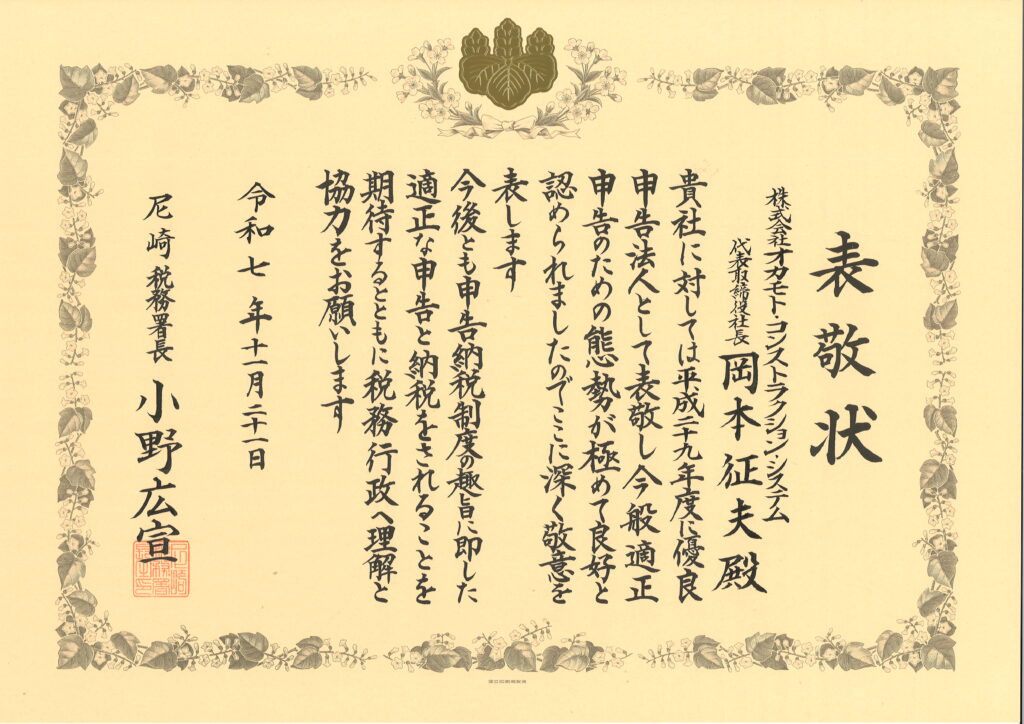 表敬状
株式会社オカモト・コンストラクション・システム
代表取締役社長 岡本征夫殿
貴社に対しては平成二十九年度に優良
申告法人として表敬し今般適正
申告のための態勢が極めて良好と
認められましたのでここに深く敬意を
表します
今後とも申告納税制度の趣旨に即した
適正な申告と納税をされることを
期待するとともに税務行政へ理解と
協力をお願いします
令和七年十一月二十一日
尼崎税務署長 小野広宣